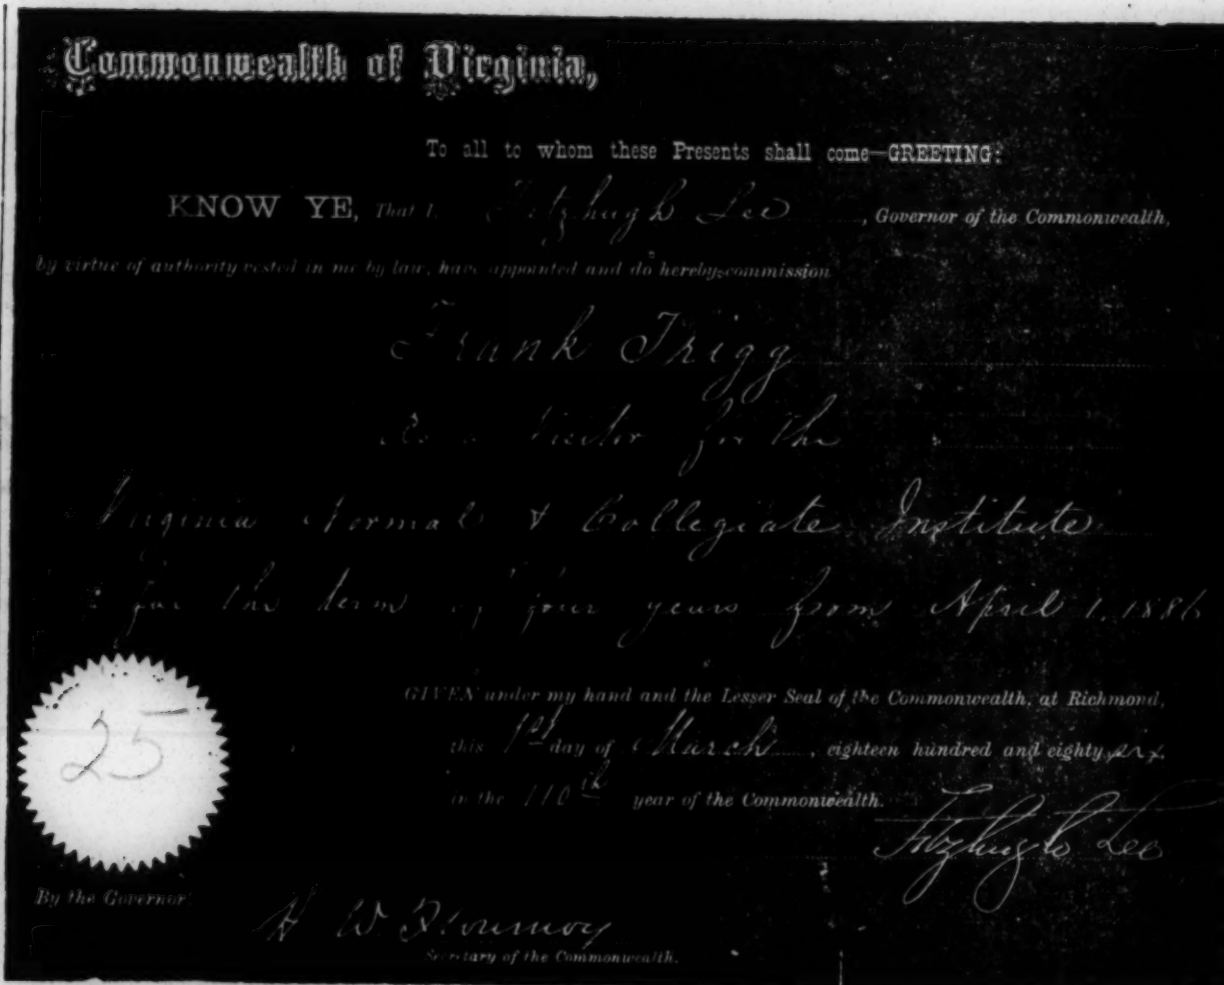 Commonwealth of Virginia,
To all to whom these Presents shall come—GREETING:
KNOW YE, That I, Fitzhugh Lee, Governor of the Commonwealth,
by virtue of authority vested in me by law, have appointed and do hereby commission
Frank Trigg
As a Visitor for the
Virginia Normal & Collegiate Institute
for the term of four years from April 1, 1886
GIVEN under my hand and the Lesser Seal of the Commonwealth, at Richmond,
this 1st day of March, eighteen hundred and eighty six
in the 110th year of the Commonwealth.
25
Fitzhugh Lee
By the Governor:
H W Flournoy
Secretary of the Commonwealth.